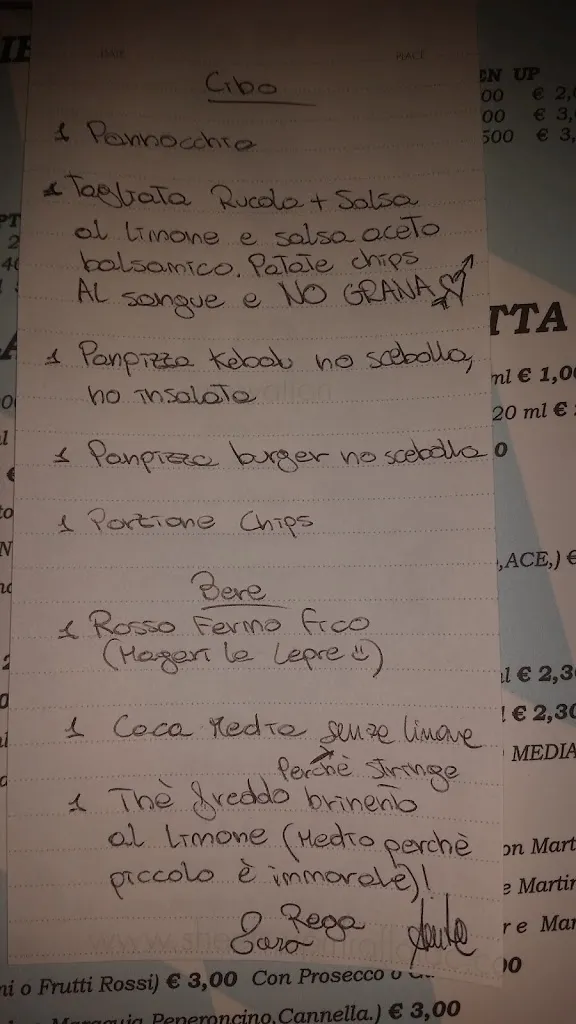 DATE PLACE
Cibo
1 Pannocchia
1 Tagliata Rucola + Salsa
al limone e salsa aceto
balsamico. Patate chips
AL sangue e NO GRANA
1 Panpizza Kebab no scebolla,
no insalata
1 Panpizza burger no scebolla
1 Portione Chips
Bere
1 Rosso Fermo fico
(Magari le Lepre)
1 Coca Media senza limone
perchè stringe
1 Thè freddo
al limone (Medio perchè
piccolo è immorale)!
Rega
Sara
EN UP
00 € 2,
00 € 3,
500 € 3,
TTA
ml € 1,0
20 ml €
0
,ACE,) €
€ 2,3
€ 2,30
MEDIA
on Mart
e Martin
r e Mar
00
ni o Frutti Rossi) € 3,00 Con Prosecco o
Peperoncino,Cannella.) € 3,00